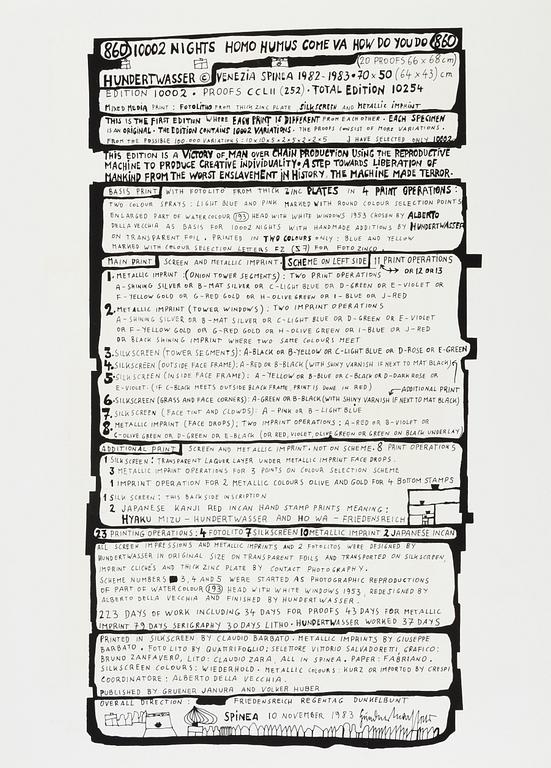 860 10002 NIGHTS HOMO HUMUS COME VA HOW DO YOU DO 860
(20 PROOFS 66 x 68 cm)
HUNDERTWASSER © VENEZIA SPINEA 1982-1983 • 70 x 50 (64 x 43) cm
EDITION 10002 • PROOFS CCLII (252) • TOTAL EDITION 10254
MIXED MEDIA PRINT: FOTOLITHO FROM THICK ZINC PLATE SILKSCREEN AND METALLIC IMPRINT
THIS IS THE FIRST EDITION WHERE EACH PRINT IS DIFFERENT FROM EACH OTHER. EACH SPECIMEN
IS AN ORIGINAL. THE EDITION CONTAINS 10002 VARIATIONS. THE PROOFS CONSIST OF MORE VARIATIONS.
FROM THE POSSIBLE 100.000 VARIATIONS: 10 x 10 x 5 x 2 x 5 x 2 x 2 I HAVE SELECTED ONLY 10002.
THIS EDITION IS A VICTORY OF MAN OVER CHAIN PRODUCTION USING THE REPRODUCTIVE
MACHINE TO PRODUCE CREATIVE INDIVIDUALITY • A STEP TOWARDS LIBERATION OF
MANKIND FROM THE WORST ENSLAVEMENT IN HISTORY. THE MACHINE MADE TERROR.
BASIS PRINT WITH FOTOLITO FROM THICK ZINC PLATES IN 4 PRINT OPERATIONS:
TWO COLOUR SPRAYS: LIGHT BLUE AND PINK MARKED WITH ROUND COLOUR SELECTION POINTS
ENLARGED PART OF WATERCOLOUR 193 HEAD WITH WHITE WINDOWS 1953 CHOSEN BY ALBERTO
DELLA VECCHIA AS BASIS FOR 10002 NIGHTS WITH HANDMADE ADDITIONS BY HUNDERTWASSER
ON TRANSPARENT FOIL. PRINTED IN TWO COLOURS ONLY: BLUE AND YELLOW
MARKED WITH COLOUR SELECTION LETTERS FZ (S7) FOR FOTOZINCO
MAIN PRINT SCREEN AND METALLIC IMPRINT. SCHEME ON LEFT SIDE 11 PRINT OPERATIONS
OR 12 OR 13
1. METALLIC IMPRINT: (ONION TOWER SEGMENTS): TWO PRINT OPERATIONS
A-SHINING SILVER OR B-MAT SILVER OR C-LIGHT BLUE OR D-GREEN OR E-VIOLET OR
F-YELLOW GOLD OR G-RED GOLD OR H-OLIVE GREEN OR I-BLUE OR J-RED
2. METALLIC IMPRINT (TOWER WINDOWS): TWO IMPRINT OPERATIONS
A-SHINING SILVER OR B-MAT SILVER OR C-LIGHT BLUE OR D-GREEN OR E-VIOLET
OR F-YELLOW GOLD OR G-RED GOLD OR H-OLIVE GREEN OR I-BLUE OR J-RED
OR BLACK SHINING IMPRINT WHERE TWO SAME COLOURS MEET
3. SILKSCREEN (TOWER SEGMENTS): A-BLACK OR B-YELLOW OR C-LIGHT BLUE OR D-ROSE OR E-GREEN
4. SILKSCREEN (OUTSIDE FACE FRAME): A-RED OR B-BLACK (WITH SHINY VARNISH IF NEXT TO MAT BLACK)
5. SILKSCREEN (INSIDE FACE FRAME): A-YELLOW OR B-BLUE OR C-BLACK OR D-DARK ROSE OR
E-VIOLET. (IF C-BLACK MEETS OUTSIDE BLACK FRAME, PRINT IS DONE IN RED) ADDITIONAL PRINT
6. SILKSCREEN (GRASS AND FACE CORNERS): A-GREEN OR B-BLACK (WITH SHINY VARNISH IF NEXT TO MAT BLACK)
7. SILK SCREEN (FACE TINT AND CLOUDS): A-PINK OR B-LIGHT BLUE
8. METALLIC IMPRINT (FACE DROPS); TWO IMPRINT OPERATIONS: A-RED OR B-VIOLET OR
C-OLIVE GREEN OR D-GREEN OR E-BLACK (OR RED, VIOLET, OLIVE GREEN OR GREEN ON BLACK UNDERLAY)
ADDITIONAL PRINT SCREEN AND METALLIC IMPRINT. NOT ON SCHEME. 8 PRINT OPERATIONS
1 SILK SCREEN: TRANSPARENT LAQUER LAYER UNDER METALLIC IMPRINT FACE DROPS.
3 METALLIC IMPRINT OPERATIONS FOR 3 POINTS ON COLOUR SELECTION SCHEME
1 IMPRINT OPERATION FOR 2 METALLIC COLOURS OLIVE AND GOLD FOR 4 BOTTOM STAMPS
1 SILK SCREEN: THIS BACK SIDE INSCRIPTION
2 JAPANESE KANJI RED INCAN HAND STAMP PRINTS MEANING:
HYAKU MIZU - HUNDERTWASSER AND HO WA - FRIEDENSREICH
23 PRINTING OPERATIONS: 4 FOTOLITO 7 SILKSCREEN 10 METALLIC IMPRINT 2 JAPANESE INCAN
ALL SCREEN IMPRESSIONS AND METALLIC IMPRINTS AND 2 FOTOLITOS WERE DESIGNED BY
HUNDERTWASSER IN ORIGINAL SIZE ON TRANSPARENT FOILS AND TRANSPORTED ON SILKSCREEN,
IMPRINT CLICHÉS AND THICK ZINC PLATE BY CONTACT PHOTOGRAPHY.
SCHEME NUMBERS 3, 4 AND 5 WERE STARTED AS PHOTOGRAPHIC REPRODUCTIONS
OF PART OF WATERCOLOUR 193 HEAD WITH WHITE WINDOWS 1953, REDESIGNED BY
ALBERTO DELLA VECCHIA AND FINISHED BY HUNDERTWASSER.
223 DAYS OF WORK INCLUDING 34 DAYS FOR PROOFS 43 DAYS FOR METALLIC
IMPRINT 79 DAYS SERIGRAPHY 30 DAYS LITHO • HUNDERTWASSER WORKED 37 DAYS
PRINTED IN SILKSCREEN BY CLAUDIO BARBATO. METALLIC IMPRINTS BY GIUSEPPE
BARBATO. FOTO LITO BY QUATTRIFOGLIO; SELETTORE VITTORIO SALVADORETTI, GRAFICO:
BRUNO ZANFAVERO, LITO: CLAUDIO ZARA, ALL IN SPINEA. PAPER: FABRIANO.
SILKSCREEN COLOURS: WIEDERHOLD. METALLIC COLOURS: KURZ OR IMPORTED BY CRESPI
COORDINATORE: ALBERTO DELLA VECCHIA.
PUBLISHED BY GRUENER JANURA AND VOLKER HUBER
OVERALL DIRECTION: FRIEDENSREICH REGENTAG DUNKELBUNT
SPINEA 10 NOVEMBER 1983 Hundertwasser